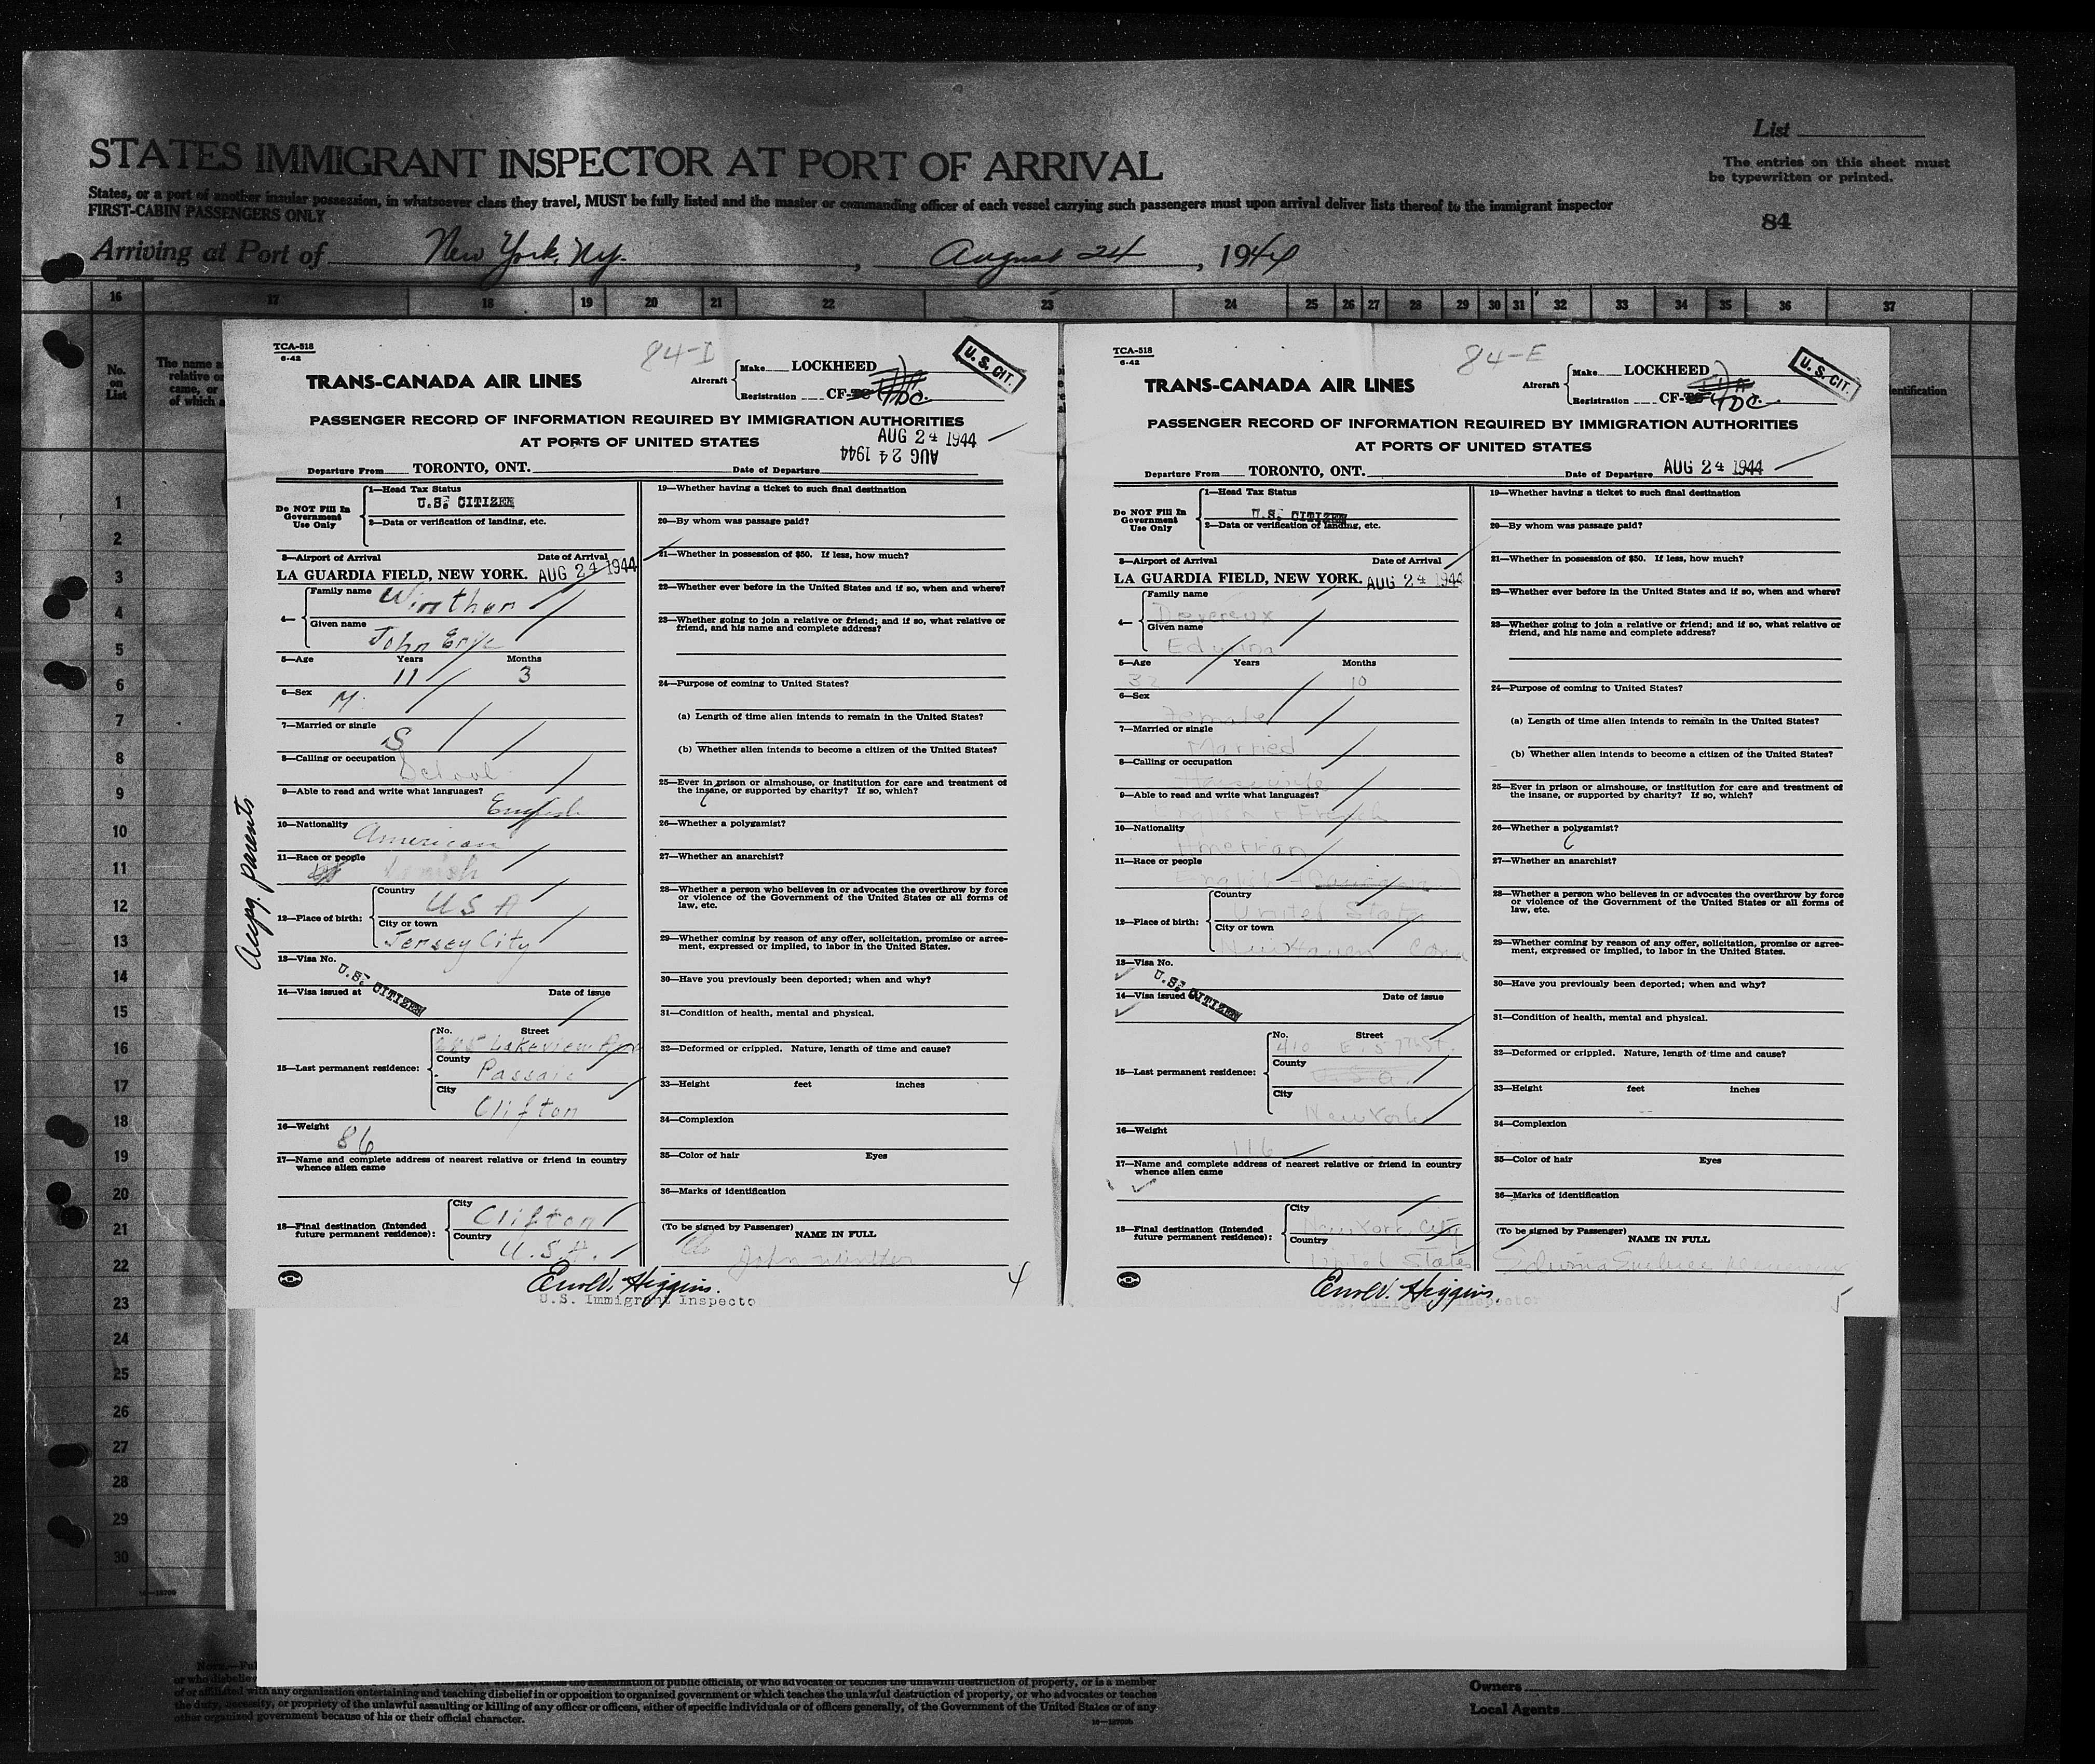 List
STATES IMMIGRANT INSPECTOR AT PORT OF ARRIVAL
The entries on this sheet must
be typewritten or printed.
States, or a port of another insular possession, in whatsoever class they travel, MUST be fully listed and the master or commanding officer of each vessel carrying such passengers must upon arrival deliver lists thereof to the immigrant inspector
FIRST-CABIN PASSENGERS ONLY
84
Arriving at Port of New York, N.Y. , August 24 , 1944
16 17 18 19 20 21 22 23 24 25 26 27 28 29 30 31 32 33 34 35 36 37
No.
on
List
The name a
relative or
came, or
of which a
entification
1
2
3
4
5
6
7
8
9
10
11
12
13
14
15
16
17
18
19
20
21
22
23
24
25
26
27
28
29
30
TCA-518
6-42
84-D
U. S. CIT.
TRANS-CANADA AIR LINES
Aircraft
Make LOCKHEED
Registration CF- TDC.
PASSENGER RECORD OF INFORMATION REQUIRED BY IMMIGRATION AUTHORITIES
AT PORTS OF UNITED STATES
AUG 24 1944
AUG 24 1944
Departure From TORONTO, ONT. Date of Departure
Do NOT Fill In
Government
Use Only
1—Head Tax Status
U.S. CITIZEN
2—Data or verification of landing, etc.
3—Airport of Arrival Date of Arrival
LA GUARDIA FIELD, NEW YORK. AUG 24 1944
4—
Family name Winther
Given name
John Eric
5—Age Years Months
11 3
6—Sex M.
7—Married or single
S
8—Calling or occupation
School
9—Able to read and write what languages?
English
10—Nationality
American
11—Race or people
12—Place of birth:
Country
U S A
City or town
Jersey City
13—Visa No.
U.S. CITIZEN
14—Visa issued at Date of issue
15—Last permanent residence:
No. Street
Lakeview
County
Passaic
City
Clifton
16—Weight
86
17—Name and complete address of nearest relative or friend in country
whence alien came
18—Final destination (Intended
future permanent residence):
City
Clifton
Country
U.S.A.
parents
19—Whether having a ticket to such final destination
20—By whom was passage paid?
21—Whether in possession of $50. If less, how much?
22—Whether ever before in the United States and if so, when and where?
23—Whether going to join a relative or friend; and if so, what relative or
friend, and his name and complete address?
24—Purpose of coming to United States?
(a) Length of time alien intends to remain in the United States?
(b) Whether alien intends to become a citizen of the United States?
25—Ever in prison or almshouse, or institution for care and treatment of
the insane, or supported by charity? If so, which?
26—Whether a polygamist?
27—Whether an anarchist?
28—Whether a person who believes in or advocates the overthrow by force
or violence of the Government of the United States or all forms of
law, etc.
29—Whether coming by reason of any offer, solicitation, promise or agree-
ment, expressed or implied, to labor in the United States.
30—Have you previously been deported; when and why?
31—Condition of health, mental and physical.
32—Deformed or crippled. Nature, length of time and cause?
33—Height feet inches
34—Complexion
35—Color of hair Eyes
36—Marks of identification
(To be signed by Passenger) NAME IN FULL
John Winther
Higgins.
U.S. Immigrant Inspecto
4
TCA-518
6-42
84-E
U. S. CIT.
TRANS-CANADA AIR LINES
Aircraft
Make LOCKHEED
Registration CF- TDC
PASSENGER RECORD OF INFORMATION REQUIRED BY IMMIGRATION AUTHORITIES
AT PORTS OF UNITED STATES
Departure From TORONTO, ONT. Date of Departure AUG 24 1944
Do NOT Fill In
Government
Use Only
1—Head Tax Status
U.S. CITIZEN
2—Data or verification of landing, etc.
3—Airport of Arrival Date of Arrival
LA GUARDIA FIELD, NEW YORK. AUG 24 1944
4—
Family name
Devereux
Given name
Edwina
5—Age Years Months
32 10
6—Sex
Female
7—Married or single
Married
8—Calling or occupation
Housewife
9—Able to read and write what languages?
French
10—Nationality
American
11—Race or people
12—Place of birth:
Country
United States
City or town
New Haven Conn
13—Visa No.
U.S. CITIZEN
14—Visa issued Date of issue
15—Last permanent residence:
No. Street
410 E. 57th St.
County
U.S.A.
City
New York
16—Weight
116
17—Name and complete address of nearest relative or friend in country
whence alien came
18—Final destination (Intended
future permanent residence):
City
New York City
Country
United States
19—Whether having a ticket to such final destination
20—By whom was passage paid?
21—Whether in possession of $50. If less, how much?
22—Whether ever before in the United States and if so, when and where?
23—Whether going to join a relative or friend; and if so, what relative or
friend, and his name and complete address?
24—Purpose of coming to United States?
(a) Length of time alien intends to remain in the United States?
(b) Whether alien intends to become a citizen of the United States?
25—Ever in prison or almshouse, or institution for care and treatment of
the insane, or supported by charity? If so, which?
26—Whether a polygamist?
27—Whether an anarchist?
28—Whether a person who believes in or advocates the overthrow by force
or violence of the Government of the United States or all forms of
law, etc.
29—Whether coming by reason of any offer, solicitation, promise or agree-
ment, expressed or implied, to labor in the United States.
30—Have you previously been deported; when and why?
31—Condition of health, mental and physical.
32—Deformed or crippled. Nature, length of time and cause?
33—Height feet inches
34—Complexion
35—Color of hair Eyes
36—Marks of identification
(To be signed by Passenger) NAME IN FULL
Edwina Devereux
Higgins.
U.S. Immigrant Inspector
5
NOTE.—Ful
or who disbelieve
of or affiliated with any organization entertaining and teaching disbelief in or opposition to organized government or which teaches the unlawful destruction of property, or who advocates or teaches
the duty, necessity, or propriety of the unlawful assaulting or killing of any officer or officers, either of specific individuals or of officers generally, of the Government of the United States or of any
other organized government because of his or their official character.
Owners
Local Agents